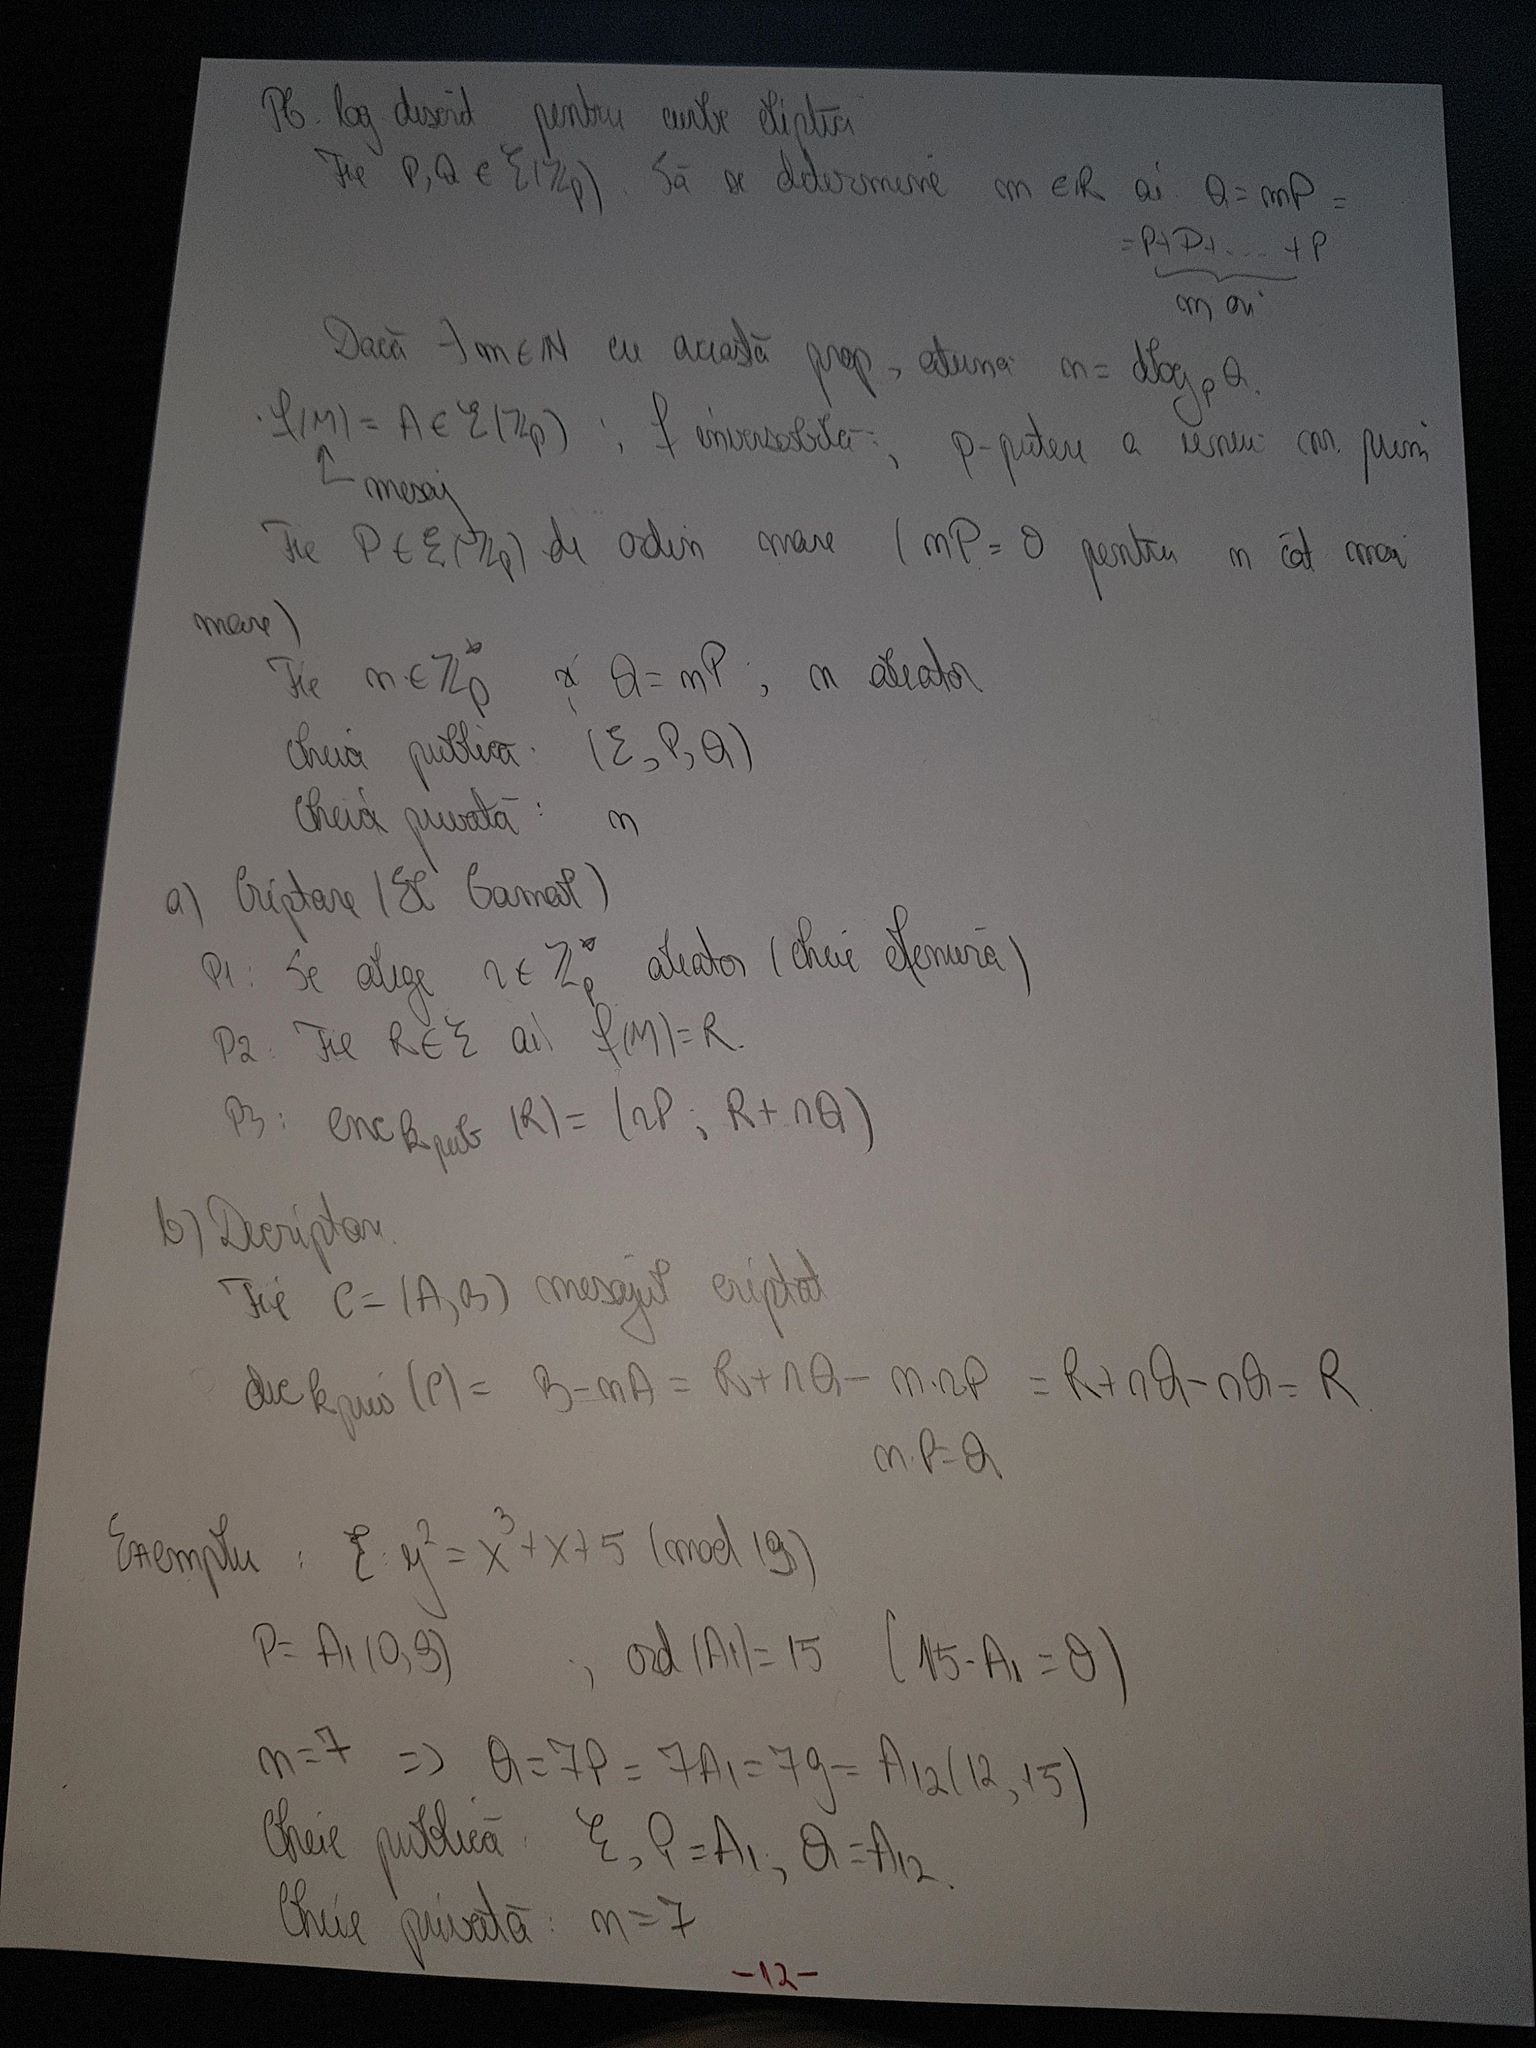 Pb. log discret pentru curbe eliptice
Fie P, Q ∈ Ɛ(ℤp). Să se determine n ∈ ℝ aî Q = nP =
= P+P+....+P
n ori
Dacă ∃ n ∈ ℕ cu această prop, atunci n = dlog_P Q.
· f(M) = A ∈ Ɛ(ℤp) ; f inversabilă ; p - putere a unui nr. prim
↑ mesaj
Fie P ∈ Ɛ(ℤp) de ordin mare (nP = O pentru n cât mai
mare)
Fie n ∈ ℤp* și Q = nP ; n aleator
Cheia publica: (Ɛ, P, Q)
Cheia privată: n
a) Criptare (El Gamal)
P1: Se alege r ∈ ℤp* aleator (cheie efemeră)
P2: Fie R ∈ Ɛ aî f(M) = R.
P3: enc k pub (R) = (rP ; R + rQ)
b) Decriptare.
Fie C = (A, B) mesajul criptat
dec k priv (C) = B - nA = R + rQ - n·rP = R + rQ - rQ = R.
n·P = Q
Exemplu : Ɛ: y² = x³ + x + 5 (mod 19)
P = A₁(0,9) ; ord(A₁) = 15 (15·A₁ = O)
n = 7 => Q = 7P = 7A₁ = 7g = A₁₂(12, 15)
Cheie publică: Ɛ, P = A₁, Q = A₁₂.
Cheie privată: n = 7
-12-